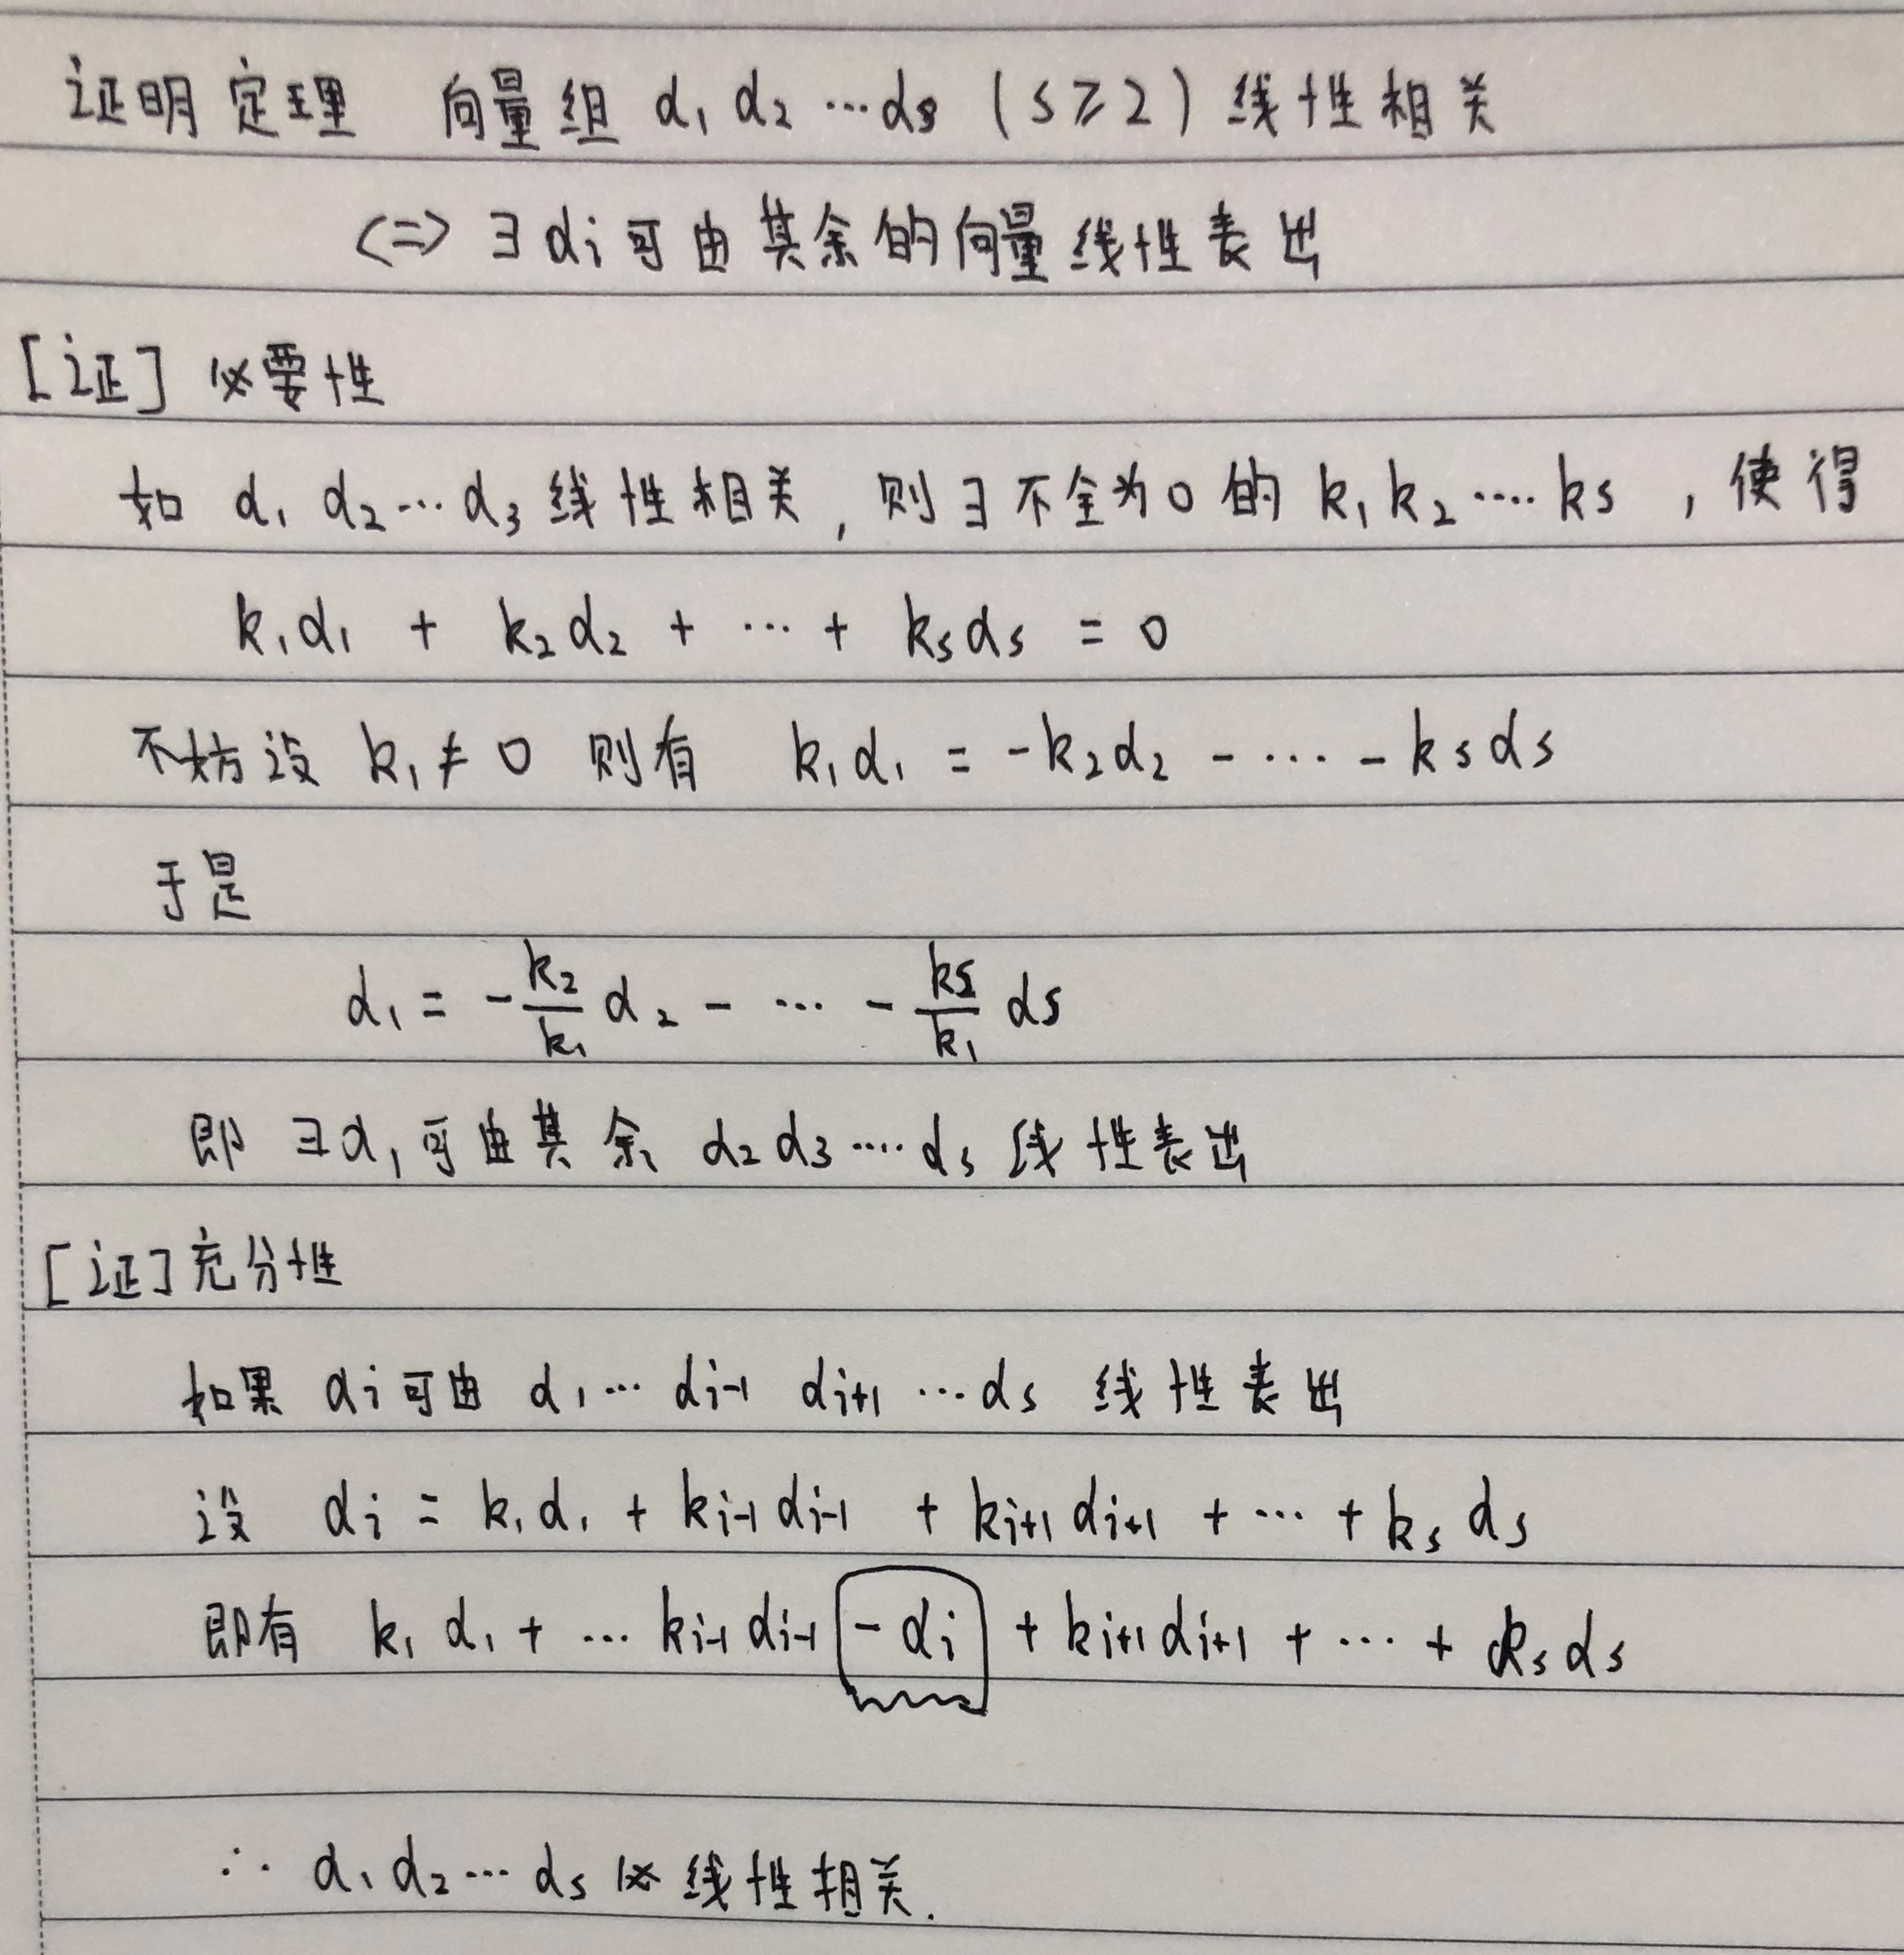 证明定理 向量组 α₁ α₂ ⋯ αs (s ≥ 2) 线性相关
<=> ∃ αi 可由其余的向量线性表出
[证] 必要性
如 α₁ α₂ ⋯ α₃ 线性相关, 则∃不全为0的 k₁ k₂ ⋯⋅ ks , 使得
k₁α₁ + k₂α₂ + ⋯ + ksαs = 0
不妨设 k₁ ≠ 0 则有 k₁α₁ = -k₂α₂ - ⋯ - ksαs
于是
α₁ = -k₂/k₁ α₂ - ⋯ - ks/k₁ αs
即 ∃α₁可由其余 α₂ α₃ ⋯⋅ αs 线性表出
[证] 充分性
如果 αi 可由 α₁ ⋯ αi-1 αi+1 ⋯ αs 线性表出
设 αi = k₁α₁ + ki-1 αi-1 + ki+1 αi+1 + ⋯ + ks αs
即有 k₁ α₁ + ⋯ ki-1 αi-1 - αi + ki+1 αi+1 + ⋯ + ks αs
∴ α₁ α₂ ⋯ αs 必线性相关.